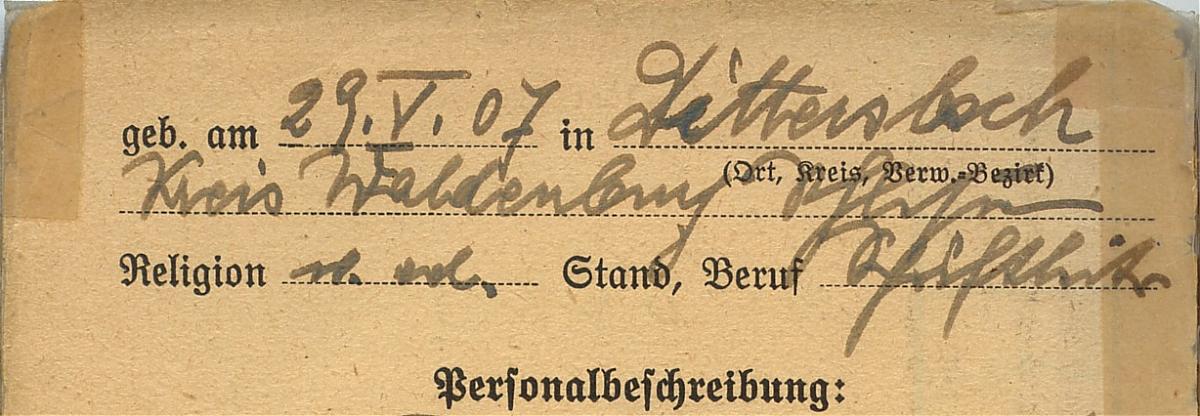 geb. am 29. V. 07 in Dittersbach
(Ort, Kreis, Verw.=Bezirk)
Kreis Waldenburg Schlesien
Religion Stand, Beruf
Personalbeschreibung: